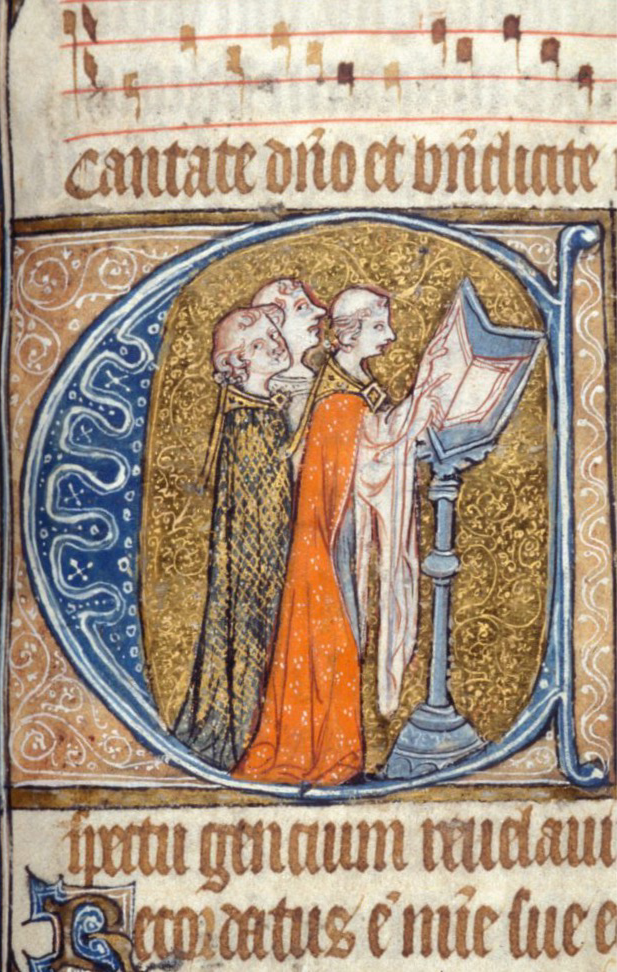 cantate dño et bñdicite
C
spectu gencium reuelauit
Recordatus ē mīe sue e